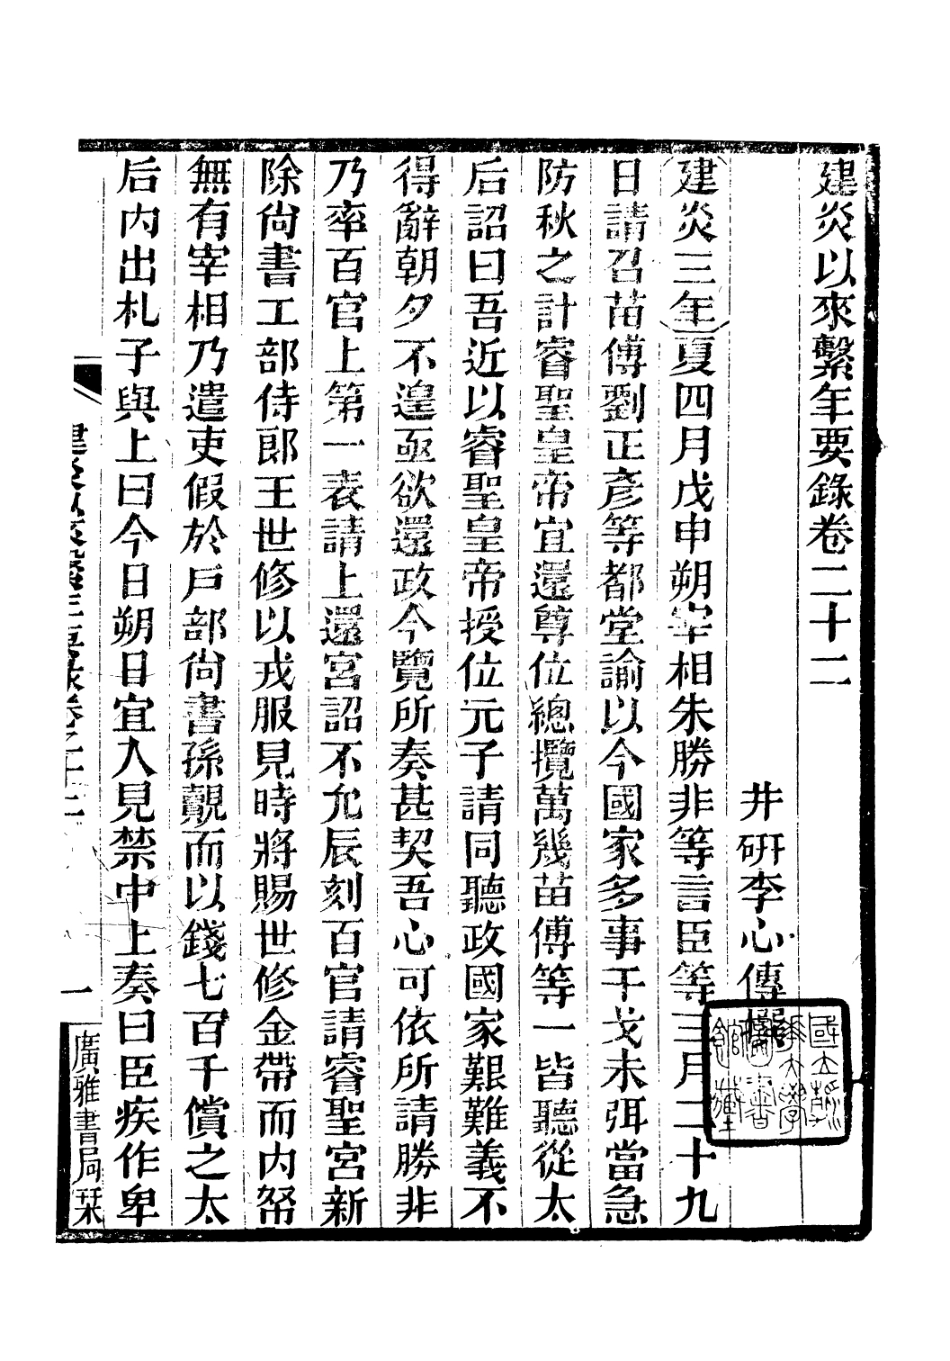 建炎以來繫年要錄卷二十二
井研李心傳撰
建炎三年夏四月戊申朔宰相朱勝非等言臣等三月二十九
日請召苗傅劉正彥等都堂諭以今國家多事干戈未弭當急
防秋之計睿聖皇帝宜還尊位總攬萬幾苗傅等一皆聽從太
后詔曰吾近以睿聖皇帝授位元子請同聽政國家艱難義不
得辭朝夕不遑亟欲還政今覽所奏甚契吾心可依所請勝非
乃率百官上第一表請上還宮詔不允辰刻百官請睿聖宮新
除尚書工部侍郎王世修以戎服見時將賜世修金帶而內帑
無有宰相乃遣吏假於戶部尚書孫覿而以錢七百千償之太
后內出札子與上曰今日朔日宜入見禁中上奏曰臣疾作卑
建炎以來繫年要錄卷二十二
一
廣雅書局栞
國立清
華大學
圖書
館藏